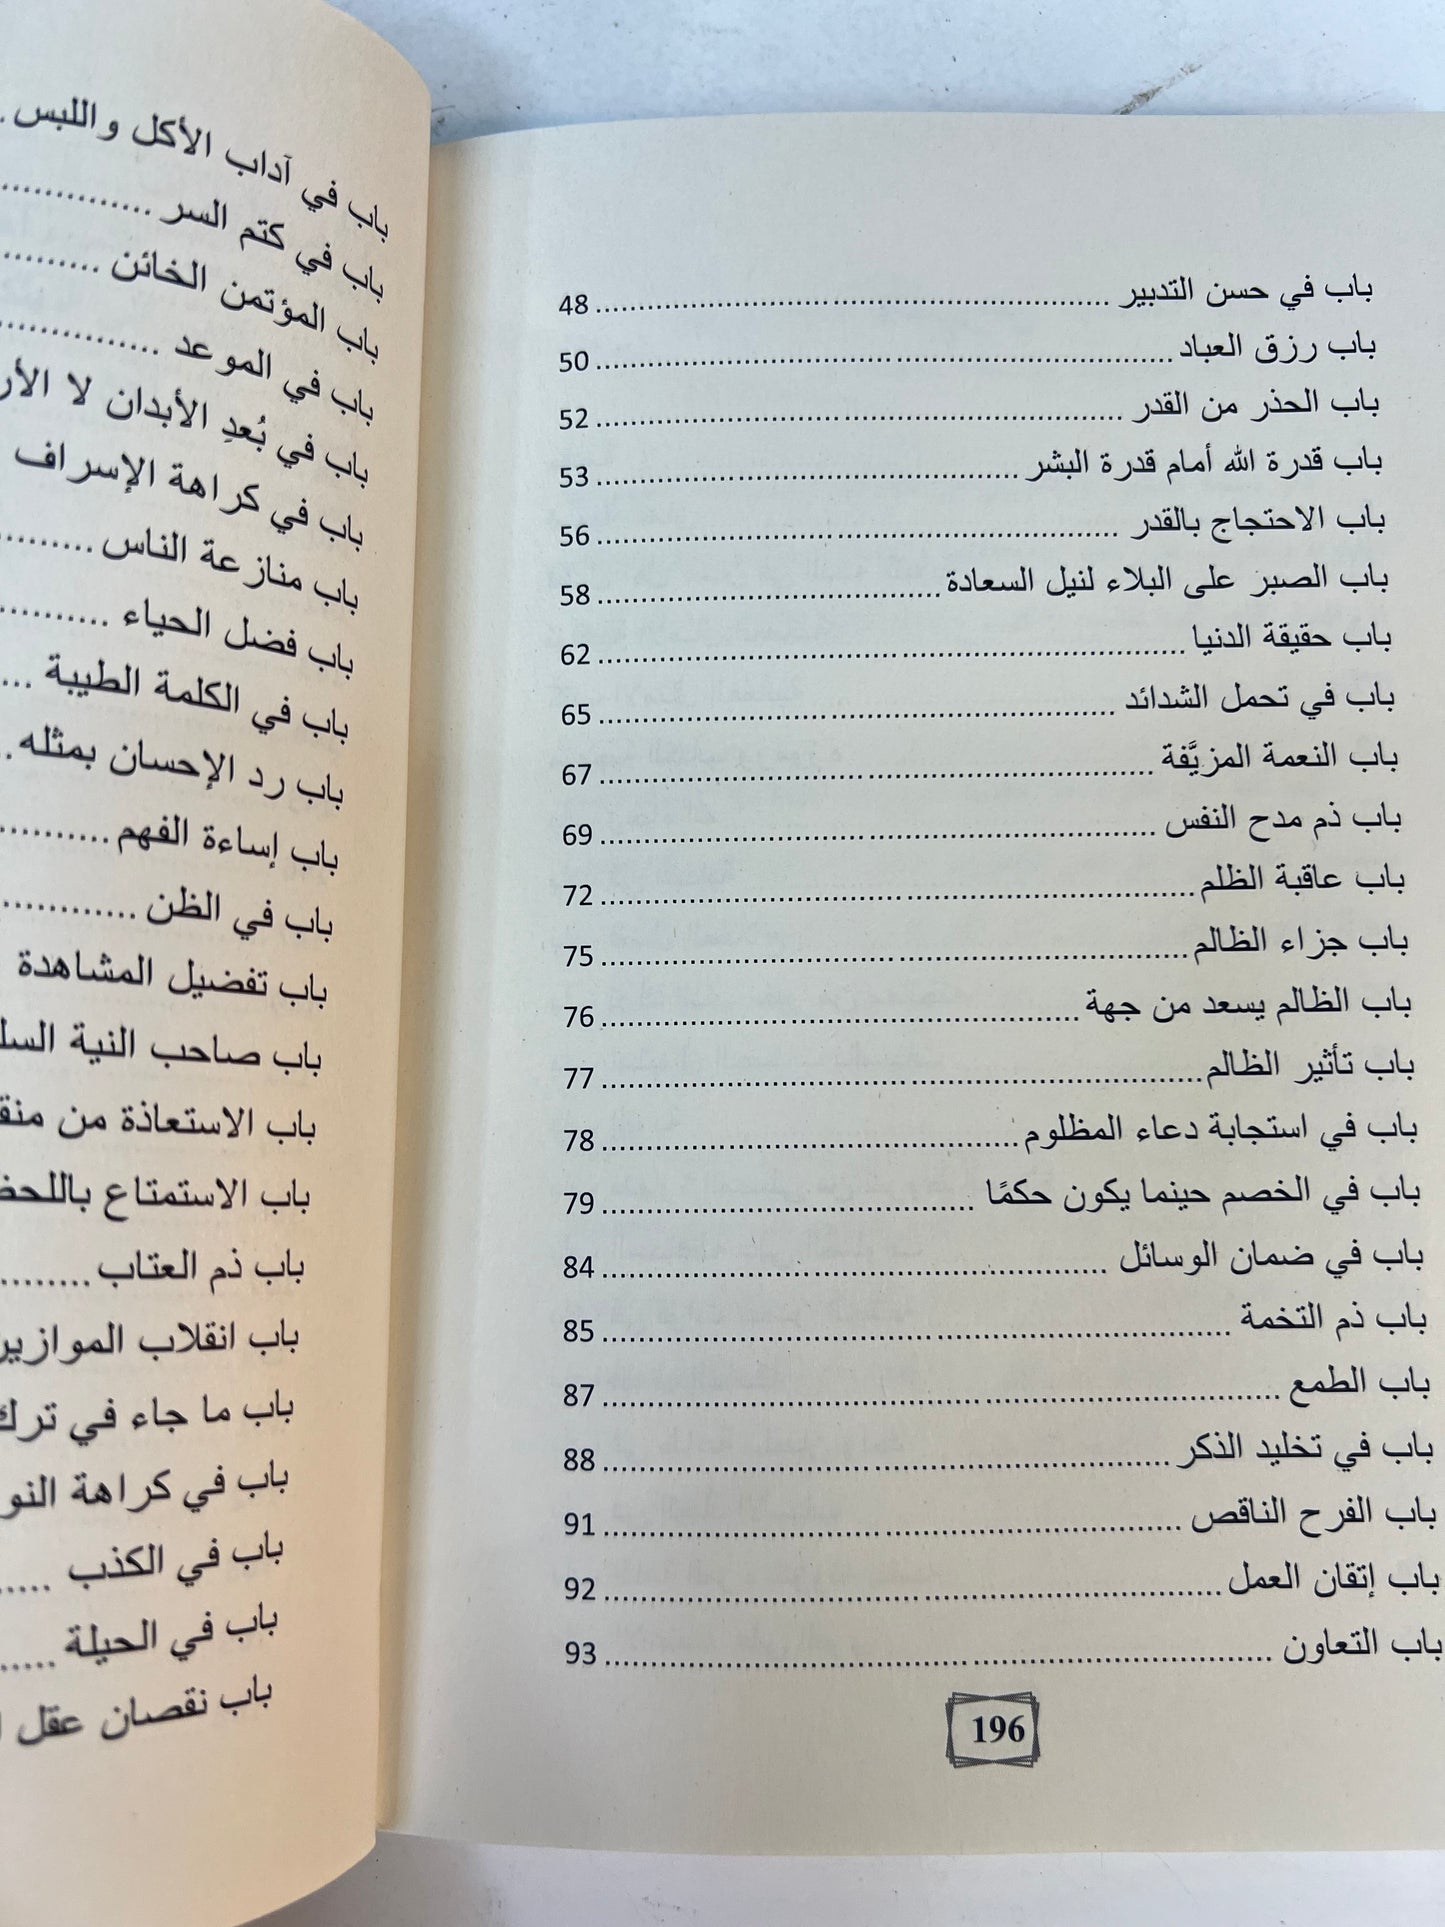 باب في حسن التدبير ........ 48
باب رزق العباد ........ 50
باب الحذر من القدر ........ 52
باب قدرة الله أمام قدرة البشر ........ 53
باب الاحتجاج بالقدر ........ 56
باب الصبر على البلاء لنيل السعادة ........ 58
باب حقيقة الدنيا ........ 62
باب في تحمل الشدائد ........ 65
باب النعمة المزيَّفة ........ 67
باب ذم مدح النفس ........ 69
باب عاقبة الظلم ........ 72
باب جزاء الظالم ........ 75
باب الظالم يسعد من جهة ........ 76
باب تأثير الظالم ........ 77
باب في استجابة دعاء المظلوم ........ 78
باب في الخصم حينما يكون حكمًا ........ 79
باب في ضمان الوسائل ........ 84
باب ذم التخمة ........ 85
باب الطمع ........ 87
باب في تخليد الذكر ........ 88
باب الفرح الناقص ........ 91
باب إتقان العمل ........ 92
باب التعاون ........ 93
196
باب في آداب الأكل واللبس .
باب في كتم السر ........
باب المؤتمن الخائن ........
باب في الموعد ........
باب في بُعدِ الأبدان لا
باب في كراهة الإسراف
باب منازعة الناس ........
باب فضل الحياء ........
باب في الكلمة الطيبة ...
باب رد الإحسان بمثله ..
باب إساءة الفهم ........
باب في الظن ........
باب تفضيل المشاهدة
باب صاحب النية
باب الاستعاذة من
باب الاستمتاع
باب ذم العتاب ........
باب انقلاب
باب ما جاء في
باب في كراهة
باب في الكذب .....
باب في الحيلة .....
باب نقصان عقل